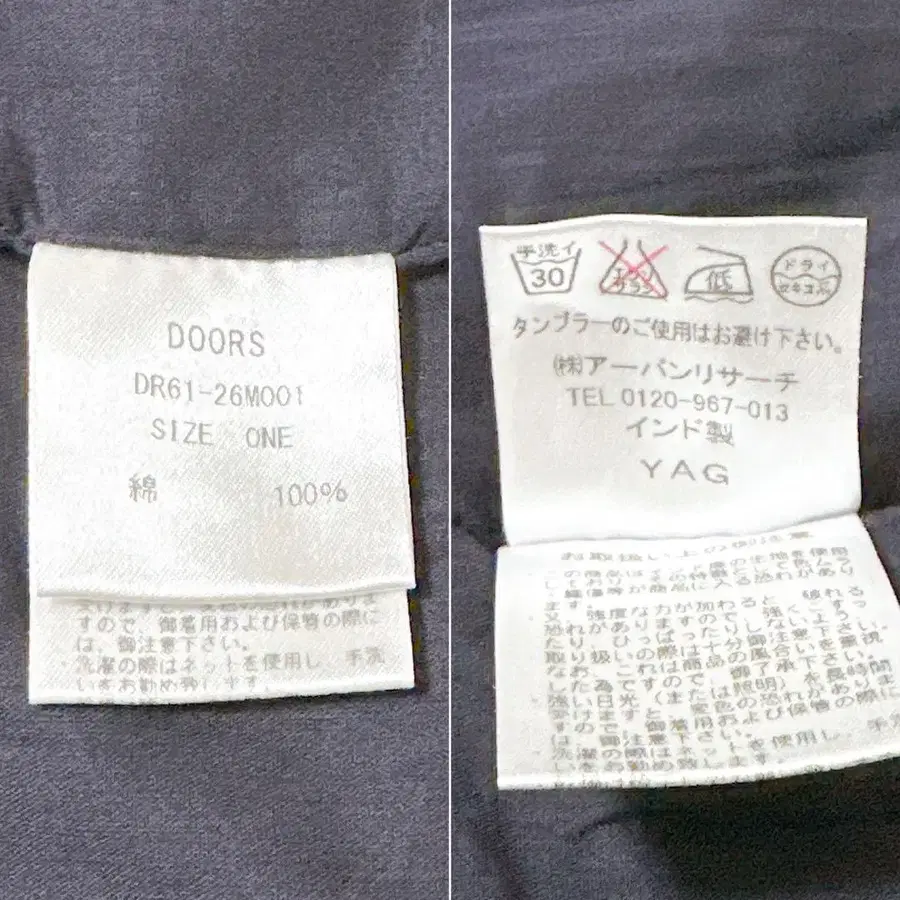 DOORS
DR61-26M001
SIZE ONE
綿 100%
すので、御着用および保管の際に
は、御注意下さい。
・洗濯の際はネットを使用し、手洗
いをお勧め致します。
手洗イ
30
エンソ
サラシ
低
ドライ
セキユ系
タンブラーのご使用はお避け下さい。
㈱アーバンリサーチ
TEL 0120-967-013
インド製
YAG
お取扱い上の御注意
この商品はインド産の生地を使用
しており、その特徴として色ムラ
、繊維等が商品に入る恐れがあり
ます。
又、強度な力が加わると、破れる
恐れがありますので、強くこすっ
たり、ひっぱったりしない下さい。
取り扱いの際は十分御注意下さい。
なお、これは商品の風合いを重視
した為ですので、御了承下さい。
・強い日光（または照明）を長時間
受けますと、変色の恐れがありま
すので、御着用および保管の際に
は、御注意下さい。
・洗濯の際はネットを使用し、手洗
いをお勧め致します。